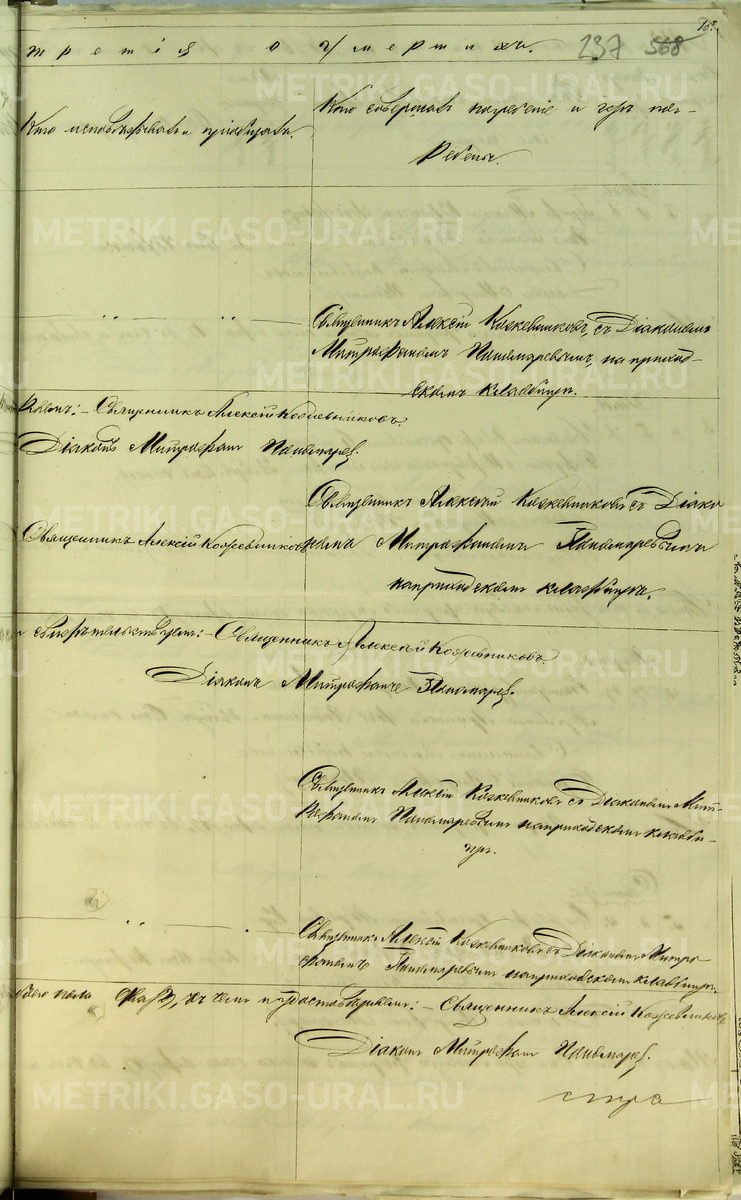 третія о умершихъ.
237 568
Кто исповѣдывалъ и пріобщалъ.
Кто совершалъ погребеніе и гдѣ пог-
ребены.
Священникъ Алексій Кожевниковъ, съ Діакономъ
Митрофаномъ Пономаревымъ, на приход-
скомъ кладбищѣ.
Священникъ Алексій Кожевниковъ.
Діаконъ Митрофанъ Пономаревъ.
Священникъ Алексій Кожевниковъ съ Діако
Священникъ Алексій Кожевниковъ
номъ Митрофаномъ Пономаревымъ
на приходскомъ кладбищѣ.
свидѣтельствуемъ: – Священникъ Алексій Кожевниковъ.
Діаконъ Митрофанъ Пономаревъ.
Священникъ Алексій Кожевниковъ съ Діакономъ Мит-
рофаномъ Пономаревымъ на приходскомъ кладби-
щѣ.
Священникъ Алексій Кожевниковъ съ Діакономъ Митро
фаномъ Пономаревымъ на приходскомъ кладбищѣ.
пола въ чемъ и удостовѣряемъ: – Священникъ Алексій Кожевниковъ
Діаконъ Митрофанъ Пономаревъ.
METRIKI.GASO-URAL.RU